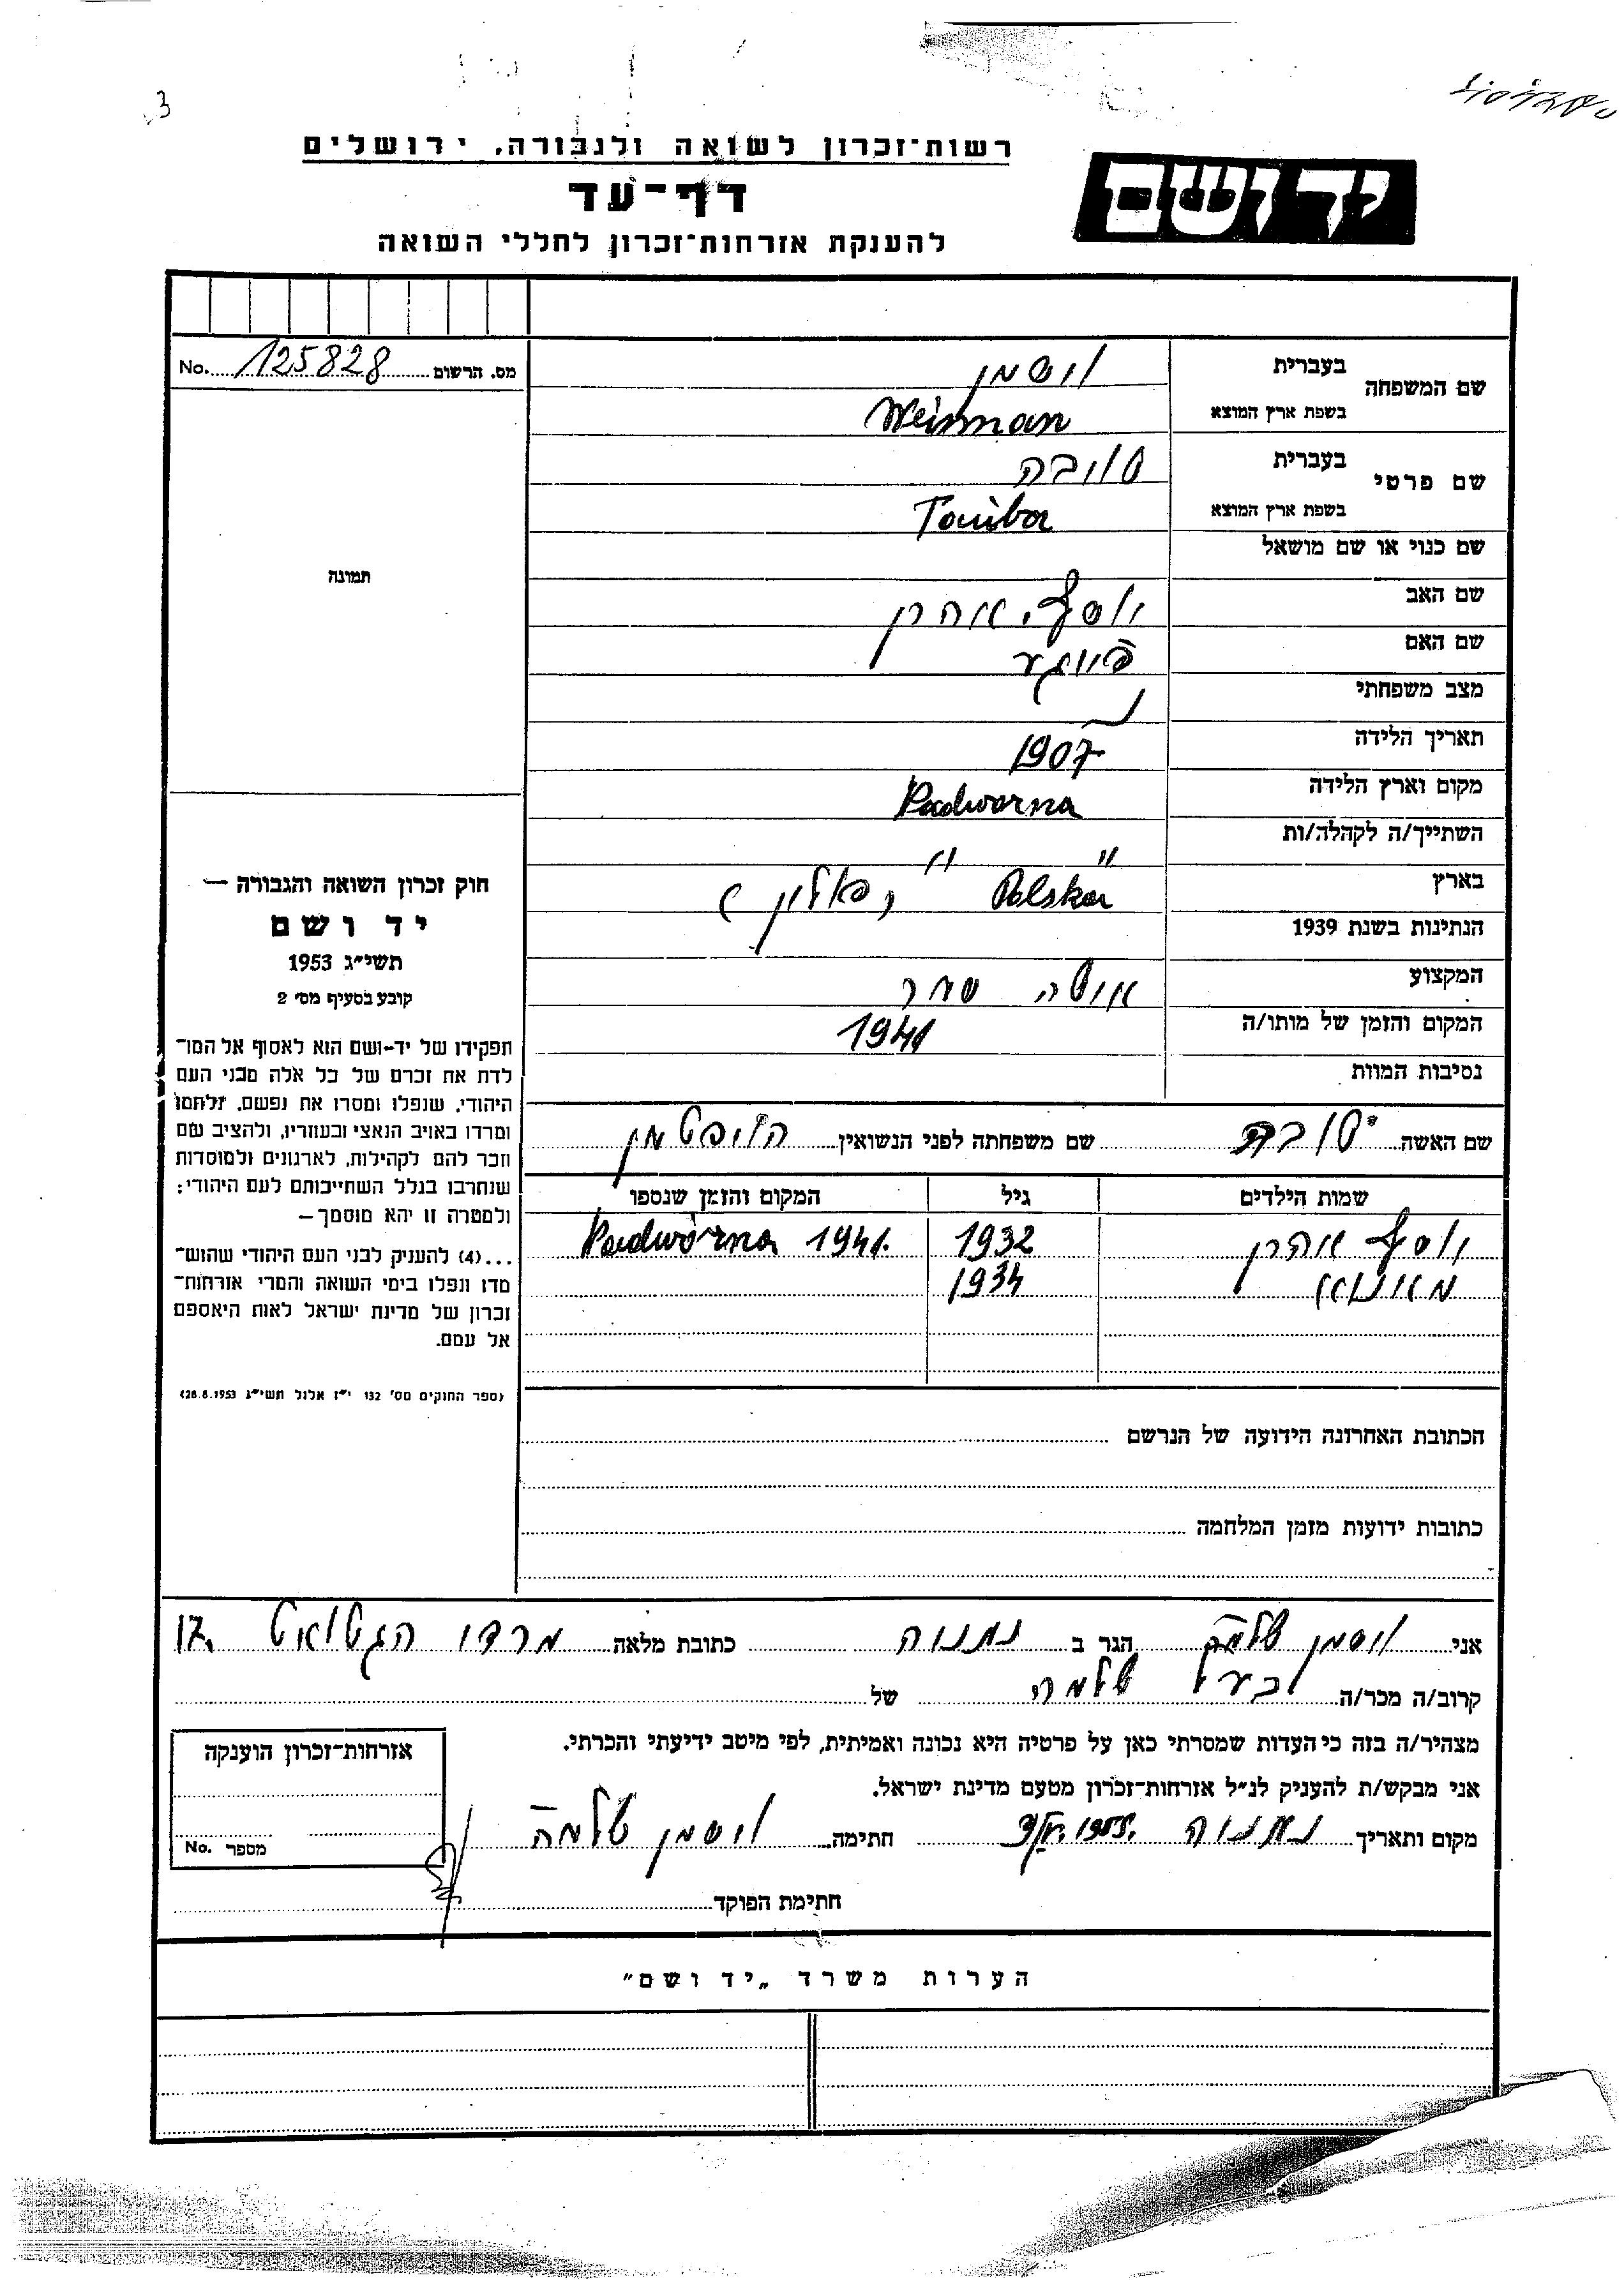 3
רשות־זכרון לשואה ולגבורה, ירושלים
יד ושם
דף־עד
להענקת אזרחות־זכרון לחללי השואה
מס. הרשום 125828 No.
שם המשפחה
בעברית ויסמן
בשפת ארץ המוצא Weisman
שם פרטי
בעברית טויבה
בשפת ארץ המוצא Touiba
שם כנוי או שם מושאל
שם האב יוסף אהרן
שם האם
מצב משפחתי נ
תאריך הלידה 1907
מקום וארץ הלידה Padworna
השתייך/ה לקהלה/ות " "
בארץ Polska (פולין)
הנתינות בשנת 1939
המקצוע
המקום והזמן של מותו/ה 1941
נסיבות המוות
שם האשה טובה שם משפחתה לפני הנשואין הויפטמן
שמות הילדים גיל המקום והזמן שנספו
יוסף אהרן 1932 Padworna 1941.
1934
תמונה
חוק זכרון השואה והגבורה —
יד ושם
תשי״ג 1953
קובע בסעיף מס׳ 2
תפקידו של יד-ושם הוא לאסוף אל המו־
לדת את זכרם של כל אלה מבני העם
היהודי, שנפלו ומסרו את נפשם, נלחמו
ומרדו באויב הנאצי ובעוזריו, ולהציב שם
וזכר להם לקהילות, לארגונים ולמוסדות
שנחרבו בגלל השתייכותם לעם היהודי;
ולמטרה זו יהא מוסמך—
...(4) להענייק לבני העם היהודי שהוש־
מדו ונפלו בימי השואה והמרי אזרחות־
זכרון של מדינת ישראל לאות היאספם
אל עמם.
(ספר החוקים מס׳ 132 י״ז אלול תשי״ג 28.8.1953)
הכתובת האחרונה הידועה של הנרשם
כתובות ידועות מזמן המלחמה
אני ויסמן שלמה הגר ב נתנוה כתובת מלאה מרדו הגטואט 17.
קרוב/ה מכר/ה שלמה של
מצהיר/ה בזה כי העדות שמסרתי כאן על פרטיה היא נכונה ואמיתית, לפי מיטב ידיעתי והכרתי.
אני מבקש/ת להעניק לנ״ל אזרחות־זכרון מטעם מדינת ישראל.
מקום ותאריך נתנוה חתימה ויסמן שלמה
חתימת הפוקד
אזרחות־זכרון הוענקה
מספר No.
הערות משרד „יד ושם״